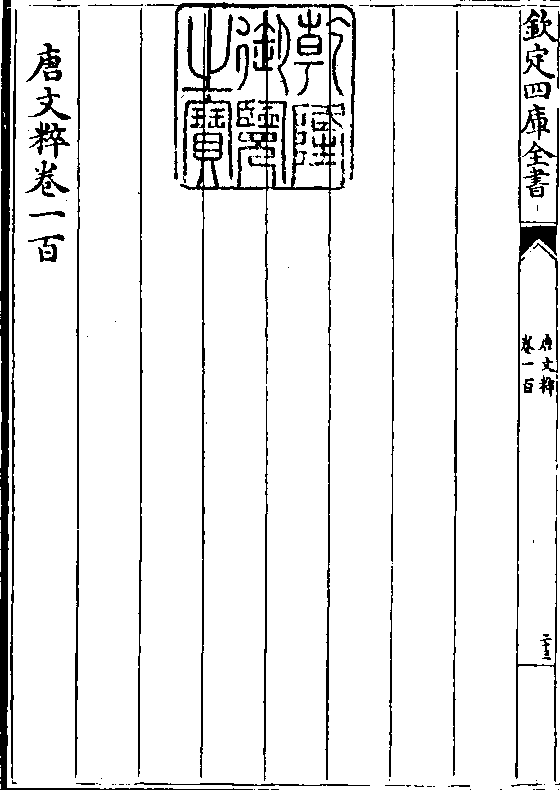 欽定四庫全書
唐文粹
卷一百
乾隆
御覽
之寶
唐文粹卷一百